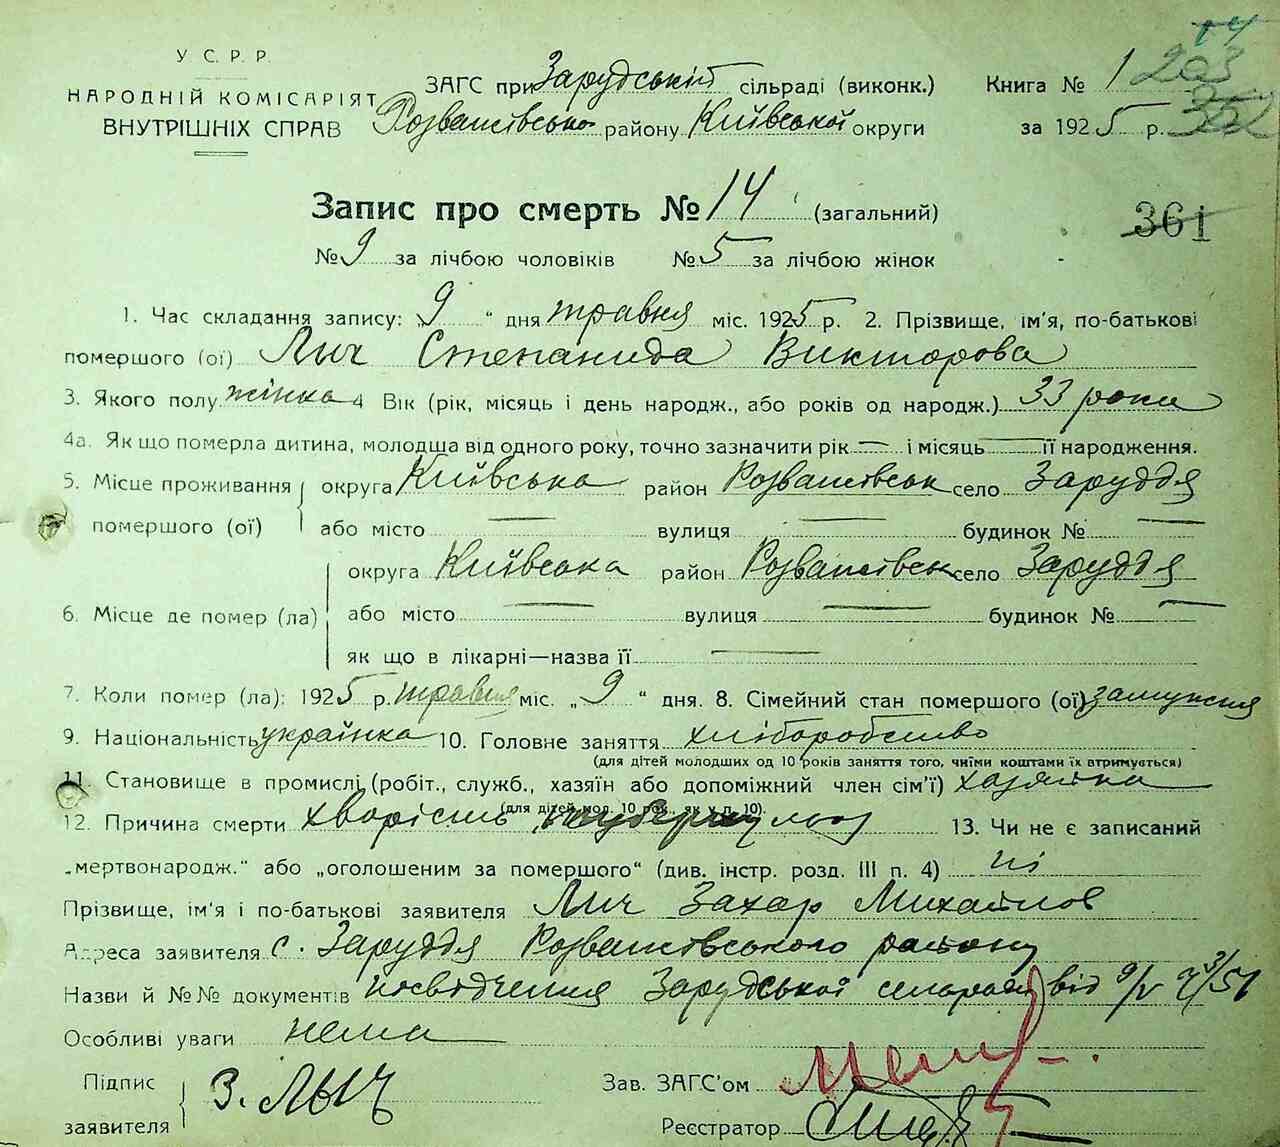 У. С. Р. Р.
НАРОДНІЙ КОМІСАРІЯТ
ВНУТРІШНІХ СПРАВ
ЗАГС при Зарудській сільраді (виконк.)
Розважівсько району Київської округи
Книга № 1
за 1925 р.
14
203
352
361
Запис про смерть № 14 (загальний)
№ 9 за лічбою чоловіків № 5 за лічбою жінок
1. Час складання запису: „9“ дня травня міс. 1925 р. 2. Прізвище, ім'я, по-батькові
помершого (ої) Лыч Степанида Викторова
3. Якого полу жінка 4 Вік (рік, місяць і день народж., або років од народж.) 33 роки
4а. Як що померла дитина, молодша від одного року, точно зазначити рік — і місяць — її народження.
5. Місце проживання помершого (ої) округа Київська район Розважівськ село Заруддя
або місто — вулиця — будинок № —
6. Місце де помер (ла) округа Київська район Розважівськ село Заруддя
або місто — вулиця — будинок № —
як що в лікарні—назва її —
7. Коли помер (ла): 1925 р. травня міс. „9“ дня. 8. Сімейний стан помершого (ої) замужня
9. Національність українка 10. Головне заняття хліборобство
(для дітей молодших од 10 років заняття того, чиїми коштами їх втримується)
11. Становище в промислі (робіт., служб., хазяїн або допоміжний член сім'ї) хазяйка
(для дітей мол. 10 рок., як у п. 10).
12. Причина смерти хворість 13. Чи не є записаний
„мертвонародж.“ або „оголошеним за помершого“ (див. інстр. розд. III п. 4) ні
Прізвище, ім'я і по-батькові заявителя Лыч Захар Михайлов
Адреса заявителя с. Заруддя Розважівського району
Назви й №№ документів посвідчення Зарудської сільради від 9/V ч 3/51
Особливі уваги нема
Підпис заявителя З. Лыч
Зав. ЗАГС'ом
Реєстратор